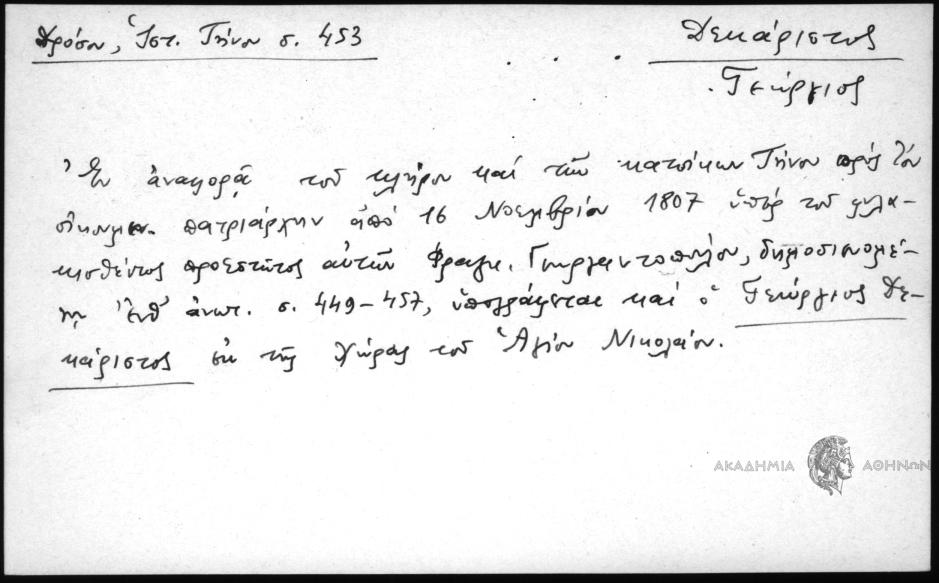 Δρόσου, Ἱστ. Τήνου σ. 453
Δεκάριστος
Γεώργιος
Ἐν ἀναφορᾷ τοῦ κλήρου καί τῶν κατοίκων Τήνου πρός τόν
οἰκουμεν. πατριάρχην ἀπό 16 Νοεμβρίου 1807 ὑπέρ τοῦ φυλα-
κισθέντος προεστῶτος αὐτῶν Φραγκ. δημοσιευομέ-
νῃ ἔνθ' ἀνωτ. σ. 449-457, ὑπογράφεται καί ὁ Γεώργιος Δε-
κάριστος ἐκ τῆς Χώρας τοῦ Ἁγίου Νικολάου.
ΑΚΑΔΗΜΙΑ ΑΘΗΝΩΝ